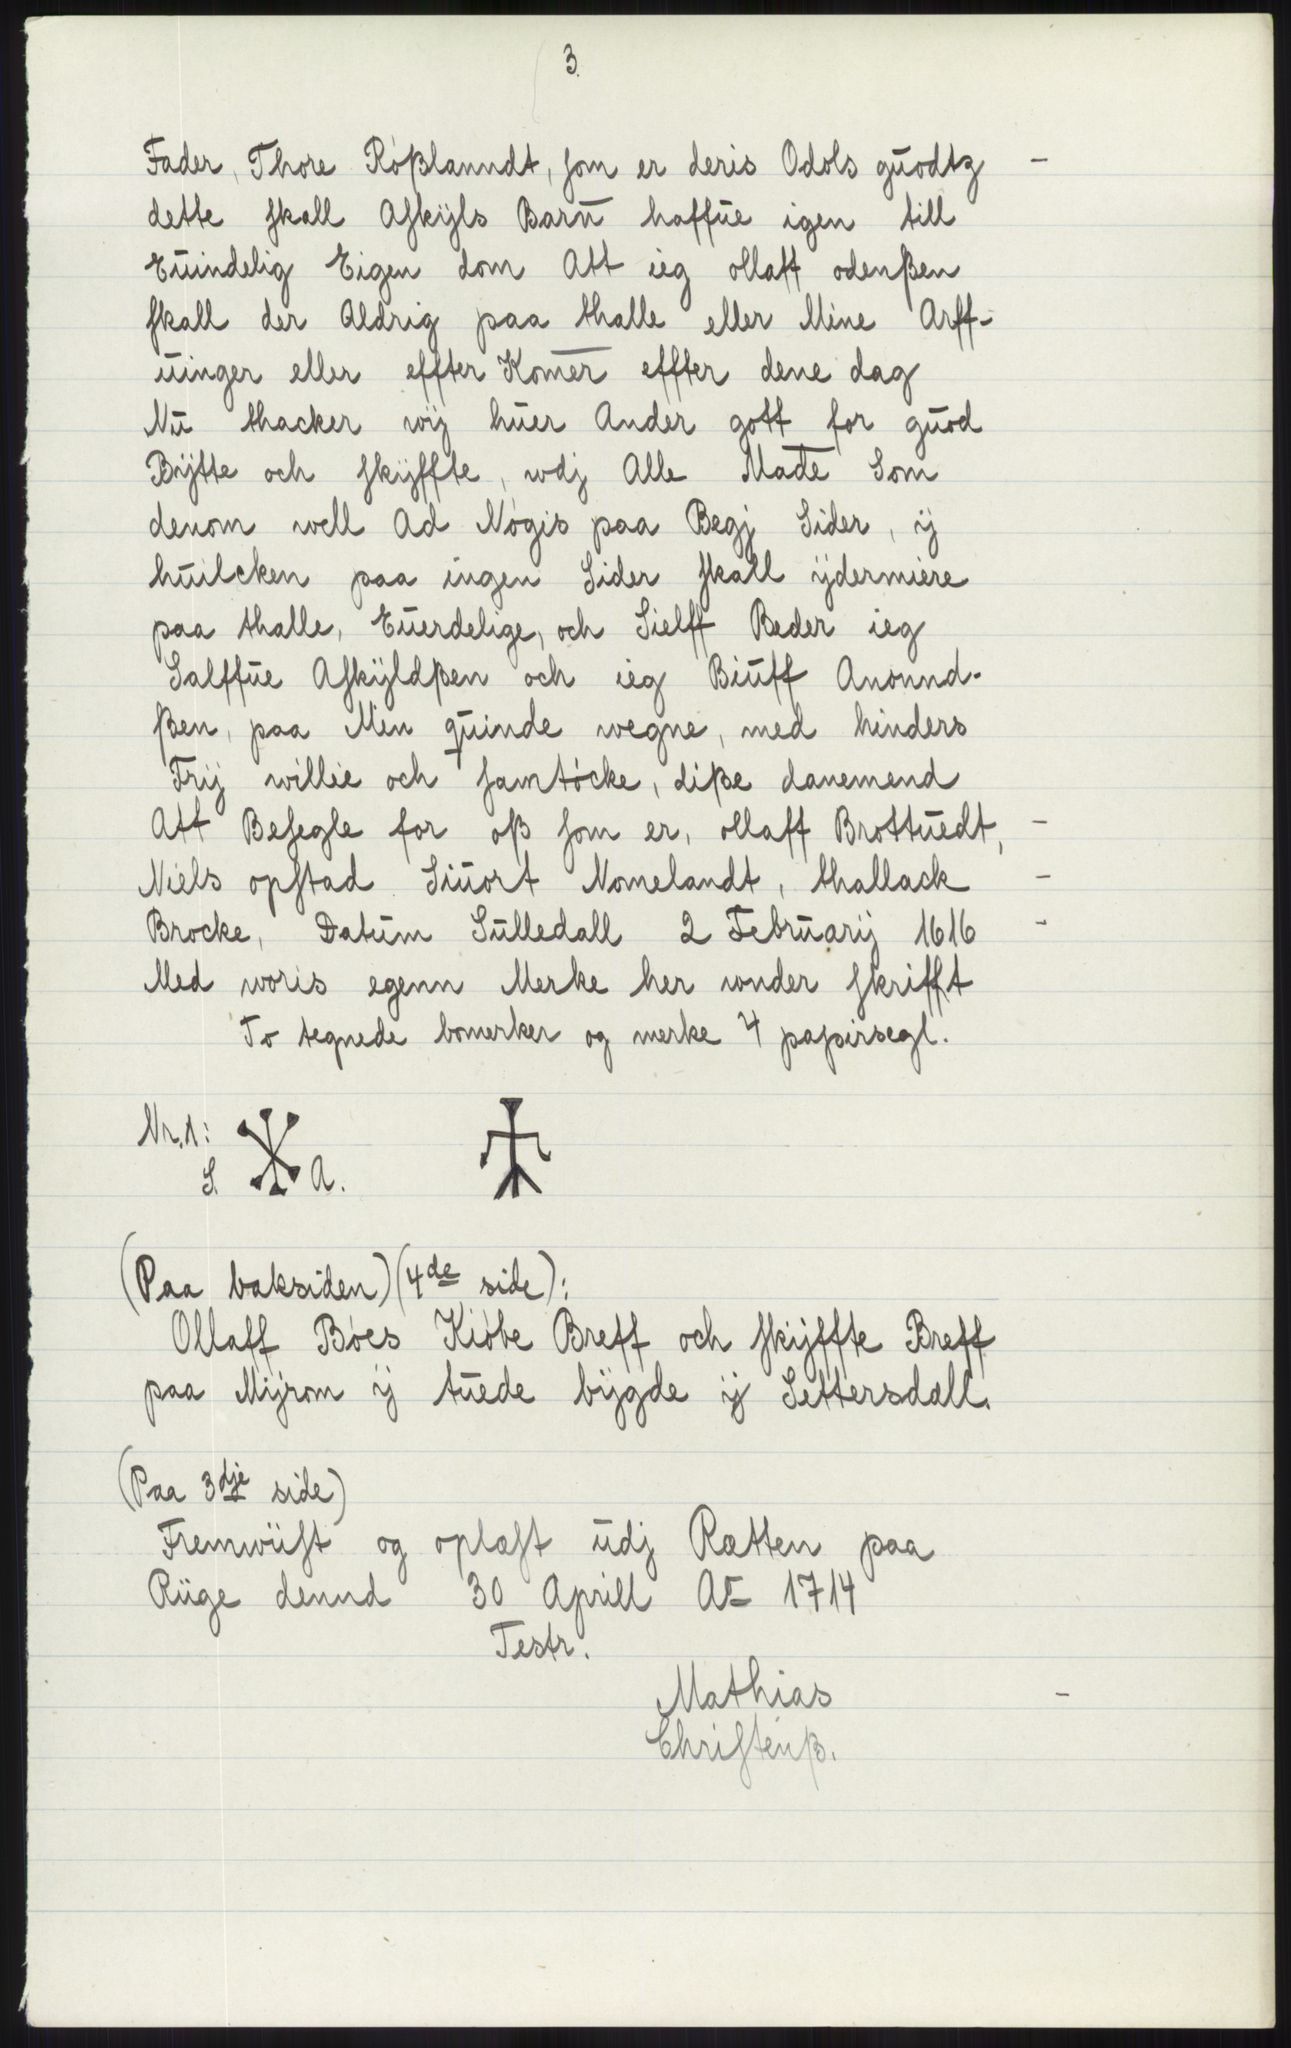 3.
Fader, Thore Róßlanndt, som er deris Odols guodtz –
dette skall Askÿls Barn̄ haffue igen till
Euindelig Eigen dom Att ieg ollaff odenßen
skall der Aldrig paa thalle eller Mine Arff-
uinger eller effter Kom̄er effter dene dag
Nu thacker wij huer Ander gott for guod
Bÿtte och skÿffte, wdj Alle Mad̄e Som
denom well Ad Nógis paa Begj Sider, ÿ
huilcken paa ingen Sider skall ÿdermiere
paa thalle, Euerdelige, och Sielff Beder ieg
Salffue Askÿldßen och ieg Biuff Anonnd-
ßen, paa Min quinde wegne, med hinders
Frij willie och samtócke, diße danemend
Att Besegle for oß som er, ollaff Brottuedt, –
Niels opstad Siuort Nomelandt, thallack –
Brocke, Datum Sulledall 2 Februarij 1616 –
Med woris egenn Merke her wnder skrifft
To tegnede bomerker og merke 4 papirsegl.
Nr. 1:
S. A.
(Paa baksiden) (4de side):
Ollaff Bóes Kióbe Breff och skÿffte Breff
paa Mÿrom ÿ tuede bÿgde ÿ Settersdall.
(Paa 3dje side)
Fremwüst og oplæst udj Rætten paa
Rüge dennd 30 Aprill Ao 1714
Testr.
Mathias –
Christenß.